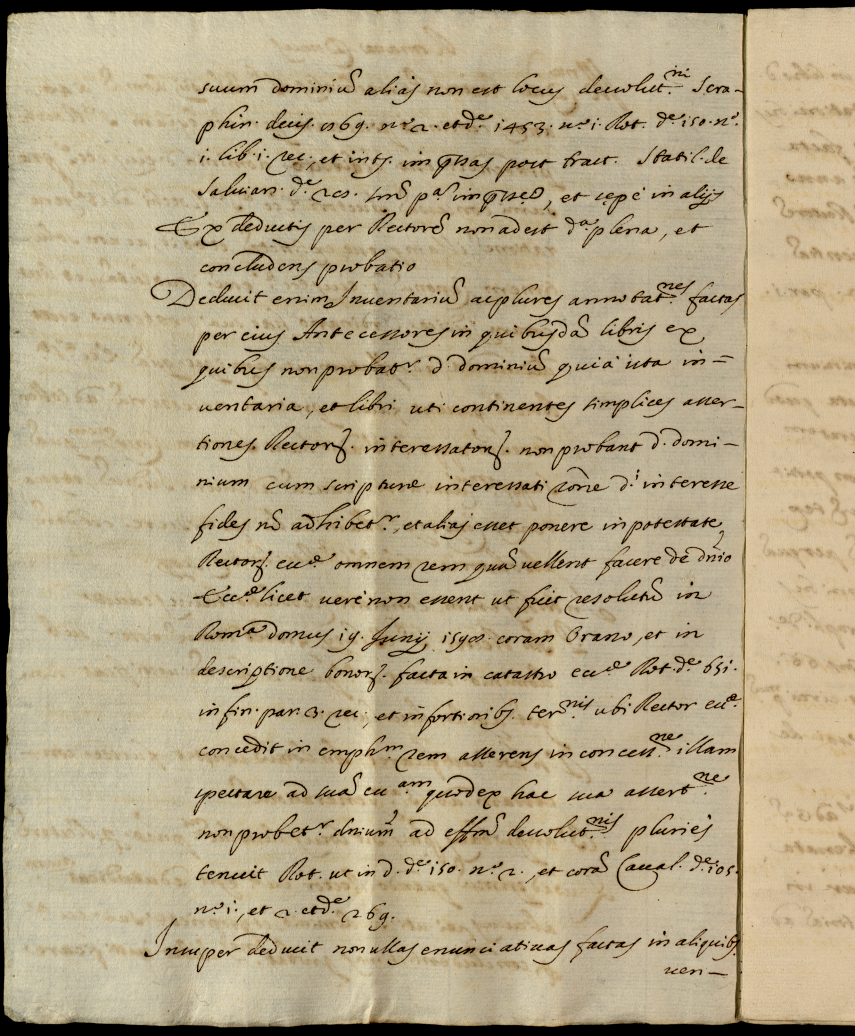 suum dominiũ alias non est locus deuolut.ni Sera-
phin. decis. 1169. n.º 2. et d.e 1453. n.º 1. Rot. d.e 150. n.º
1. lib. 1. rec., et int. impssas post tract. Statil. de
Saluian. d.e 210. impsse, et sepè in alijs
Ex deductis per Rectorẽ non adest d.a plena, et
concludens probatio
Deducit enim Inuentariũ ac plures annotat.nes factas
per eius Antecessores in quibusdã libris ex
quibus non probat.r d. dominiũ quia ista in=
uentaria, et libri uti continentes simplices asser-
tiones Rectorꝝ. interessatorꝝ. non probant d. domi-
nium cum scripturæ interessati rõne d.i interesse
fides nõ adhibet.r, et alias esset ponere in potestate
Rectorꝝ. ecc.æ omnem rem quã uellent facere de dñio
Ecc.æ licet uerè non essent ut fuit resolutũ in
Rom.a domus 19. Junij 1598. coram Orano, et in
descriptione bonorꝝ. facta in catastro ecc.æ Rot. d.e 651.
in fin. par. 3. rec., et in fortioribꝫ. ter.nis ubi Rector ecc.æ
concedit in emph.m rem asserens in concess.ne illam
spectare ad suã ecc.am quod ex hac sua assert.ne
non probet.r dñium ad effm̃ deuolut.nis pluriès
tenuit Rot. ut in d. d.e 150. n.º 2., et corã Caual. d.e 105.
n.º 1., et 2. et d.e 269.
Insuper deducit nonullas enunciatiuas factas in aliquibꝫ.
uen-